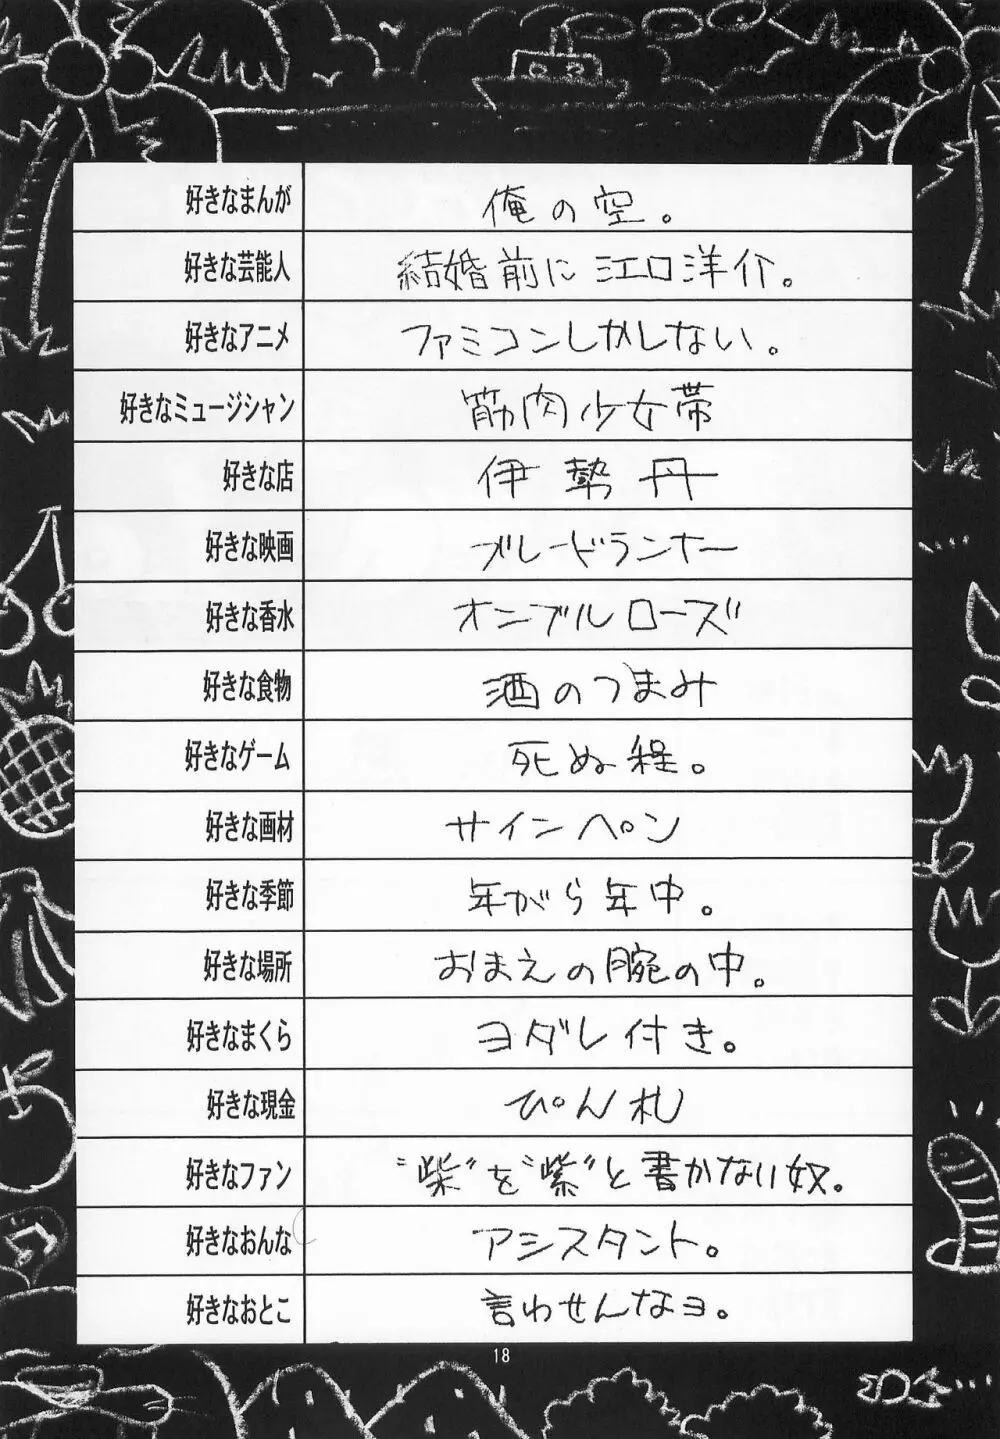 好きなまんが 俺の空。
好きな芸能人 結婚前に江口洋介。
好きなアニメ ファミコンしかしない。
好きなミュージシャン 筋肉少女帯
好きな店 伊勢丹
好きな映画 ブレードランナー
好きな香水 オンブルローズ
好きな食物 酒のつまみ
好きなゲーム 死ぬ程。
好きな画材 サインペン
好きな季節 年がら年中。
好きな場所 おまえの腕の中。
好きなまくら ヨダレ付き。
好きな現金 ぴん札
好きなファン “柴”を“紫”と書かない奴。
好きなおんな アシスタント。
好きなおとこ 言わせんなヨ。
18